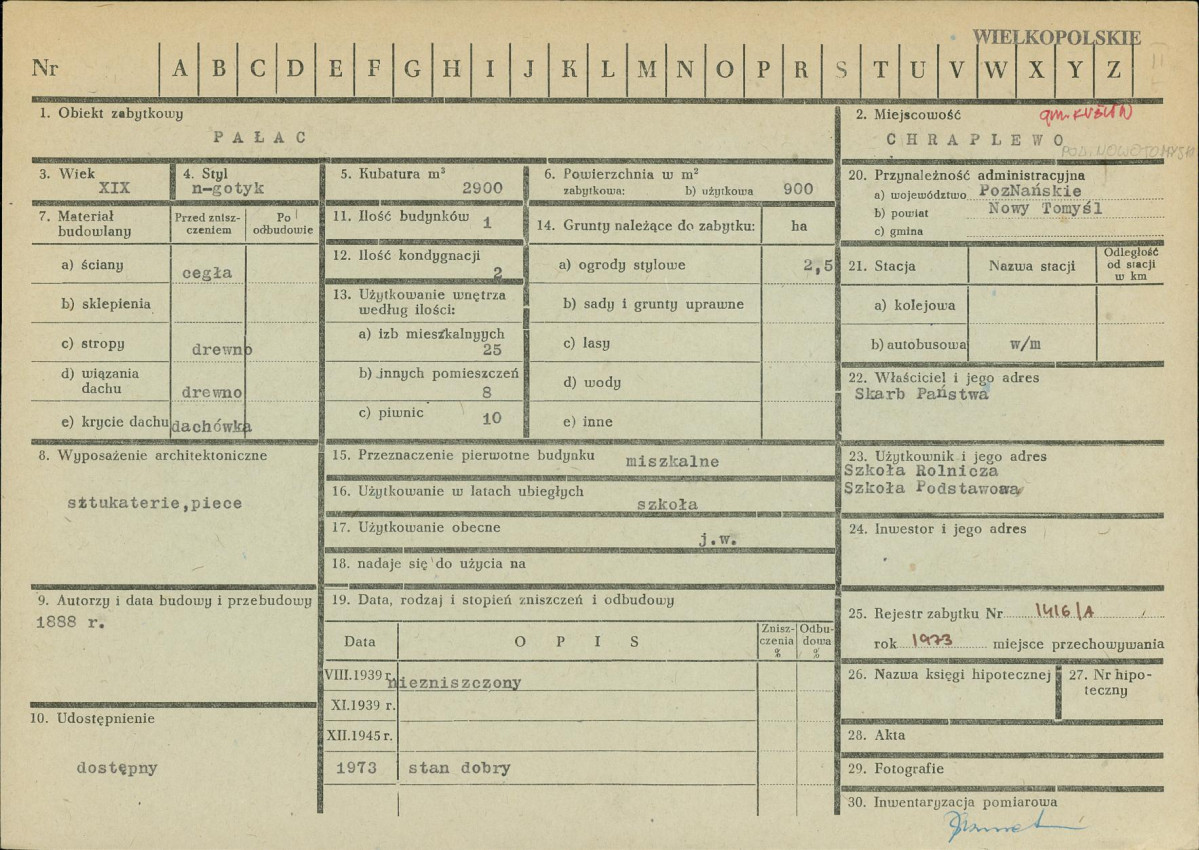 WIELKOPOLSKIE
Nr A B C D E F G H I J K L M N O P R S T U V W X Y Z
II
1. Obiekt zabytkowy
PAŁAC
2. Miejscowość gm. KUŚLIN
CHRAPLEWO
POW. NOWOTOMYSKI
3. Wiek
XIX
4. Styl
n-gotyk
5. Kubatura m³
2900
6. Powierzchnia w m²
zabytkowa: b) użytkowa 900
20. Przynależność administracyjna
a) województwo PozNańskie
b) powiat Nowy Tomyśl
c) gmina
7. Materiał budowlany
Przed zniszczeniem
Po odbudowie
a) ściany cegła
b) sklepienia
c) stropy drewno
d) wiązania dachu drewno
e) krycie dachu dachówka
11. Ilość budynków 1
12. Ilość kondygnacji
2
13. Użytkowanie wnętrza
według ilości:
a) izb mieszkalnyych
25
b) innych pomieszczeń
8
c) piwnic 10
14. Grunty należące do zabytku: ha
a) ogrody stylowe 2,5
b) sady i grunty uprawne
c) lasy
d) wody
e) inne
21. Stacja
Nazwa stacji
Odległość
od stacji
w km
a) kolejowa
b) autobusowa w/m
22. Właściciel i jego adres
Skarb Państwa
8. Wyposażenie architektoniczne
sztukaterie,piece
15. Przeznaczenie pierwotne budynku miszkalne
16. Użytkowanie w latach ubiegłych
szkoła
17. Użytkowanie obecne
j.w.
18. nadaje się do użycia na
23. Użytkownik i jego adres
Szkoła Rolnicza
Szkoła Podstawowa
24. Inwestor i jego adres
9. Autorzy i data budowy i przebudowy
1888 r.
19. Data, rodzaj i stopień zniszczeń i odbudowy
Data
OPIS
Zniszczenia %
Odbudowa %
VIII.1939 r. niezniszczony
XI.1939 r.
XII.1945 r.
1973 stan dobry
10. Udostępnienie
dostępny
25. Rejestr zabytku Nr 1416/A
rok 1973 miejsce przechowywania
26. Nazwa księgi hipotecznej
27. Nr hipoteczny
28. Akta
29. Fotografie
30. Inwentaryzacja pomiarowa